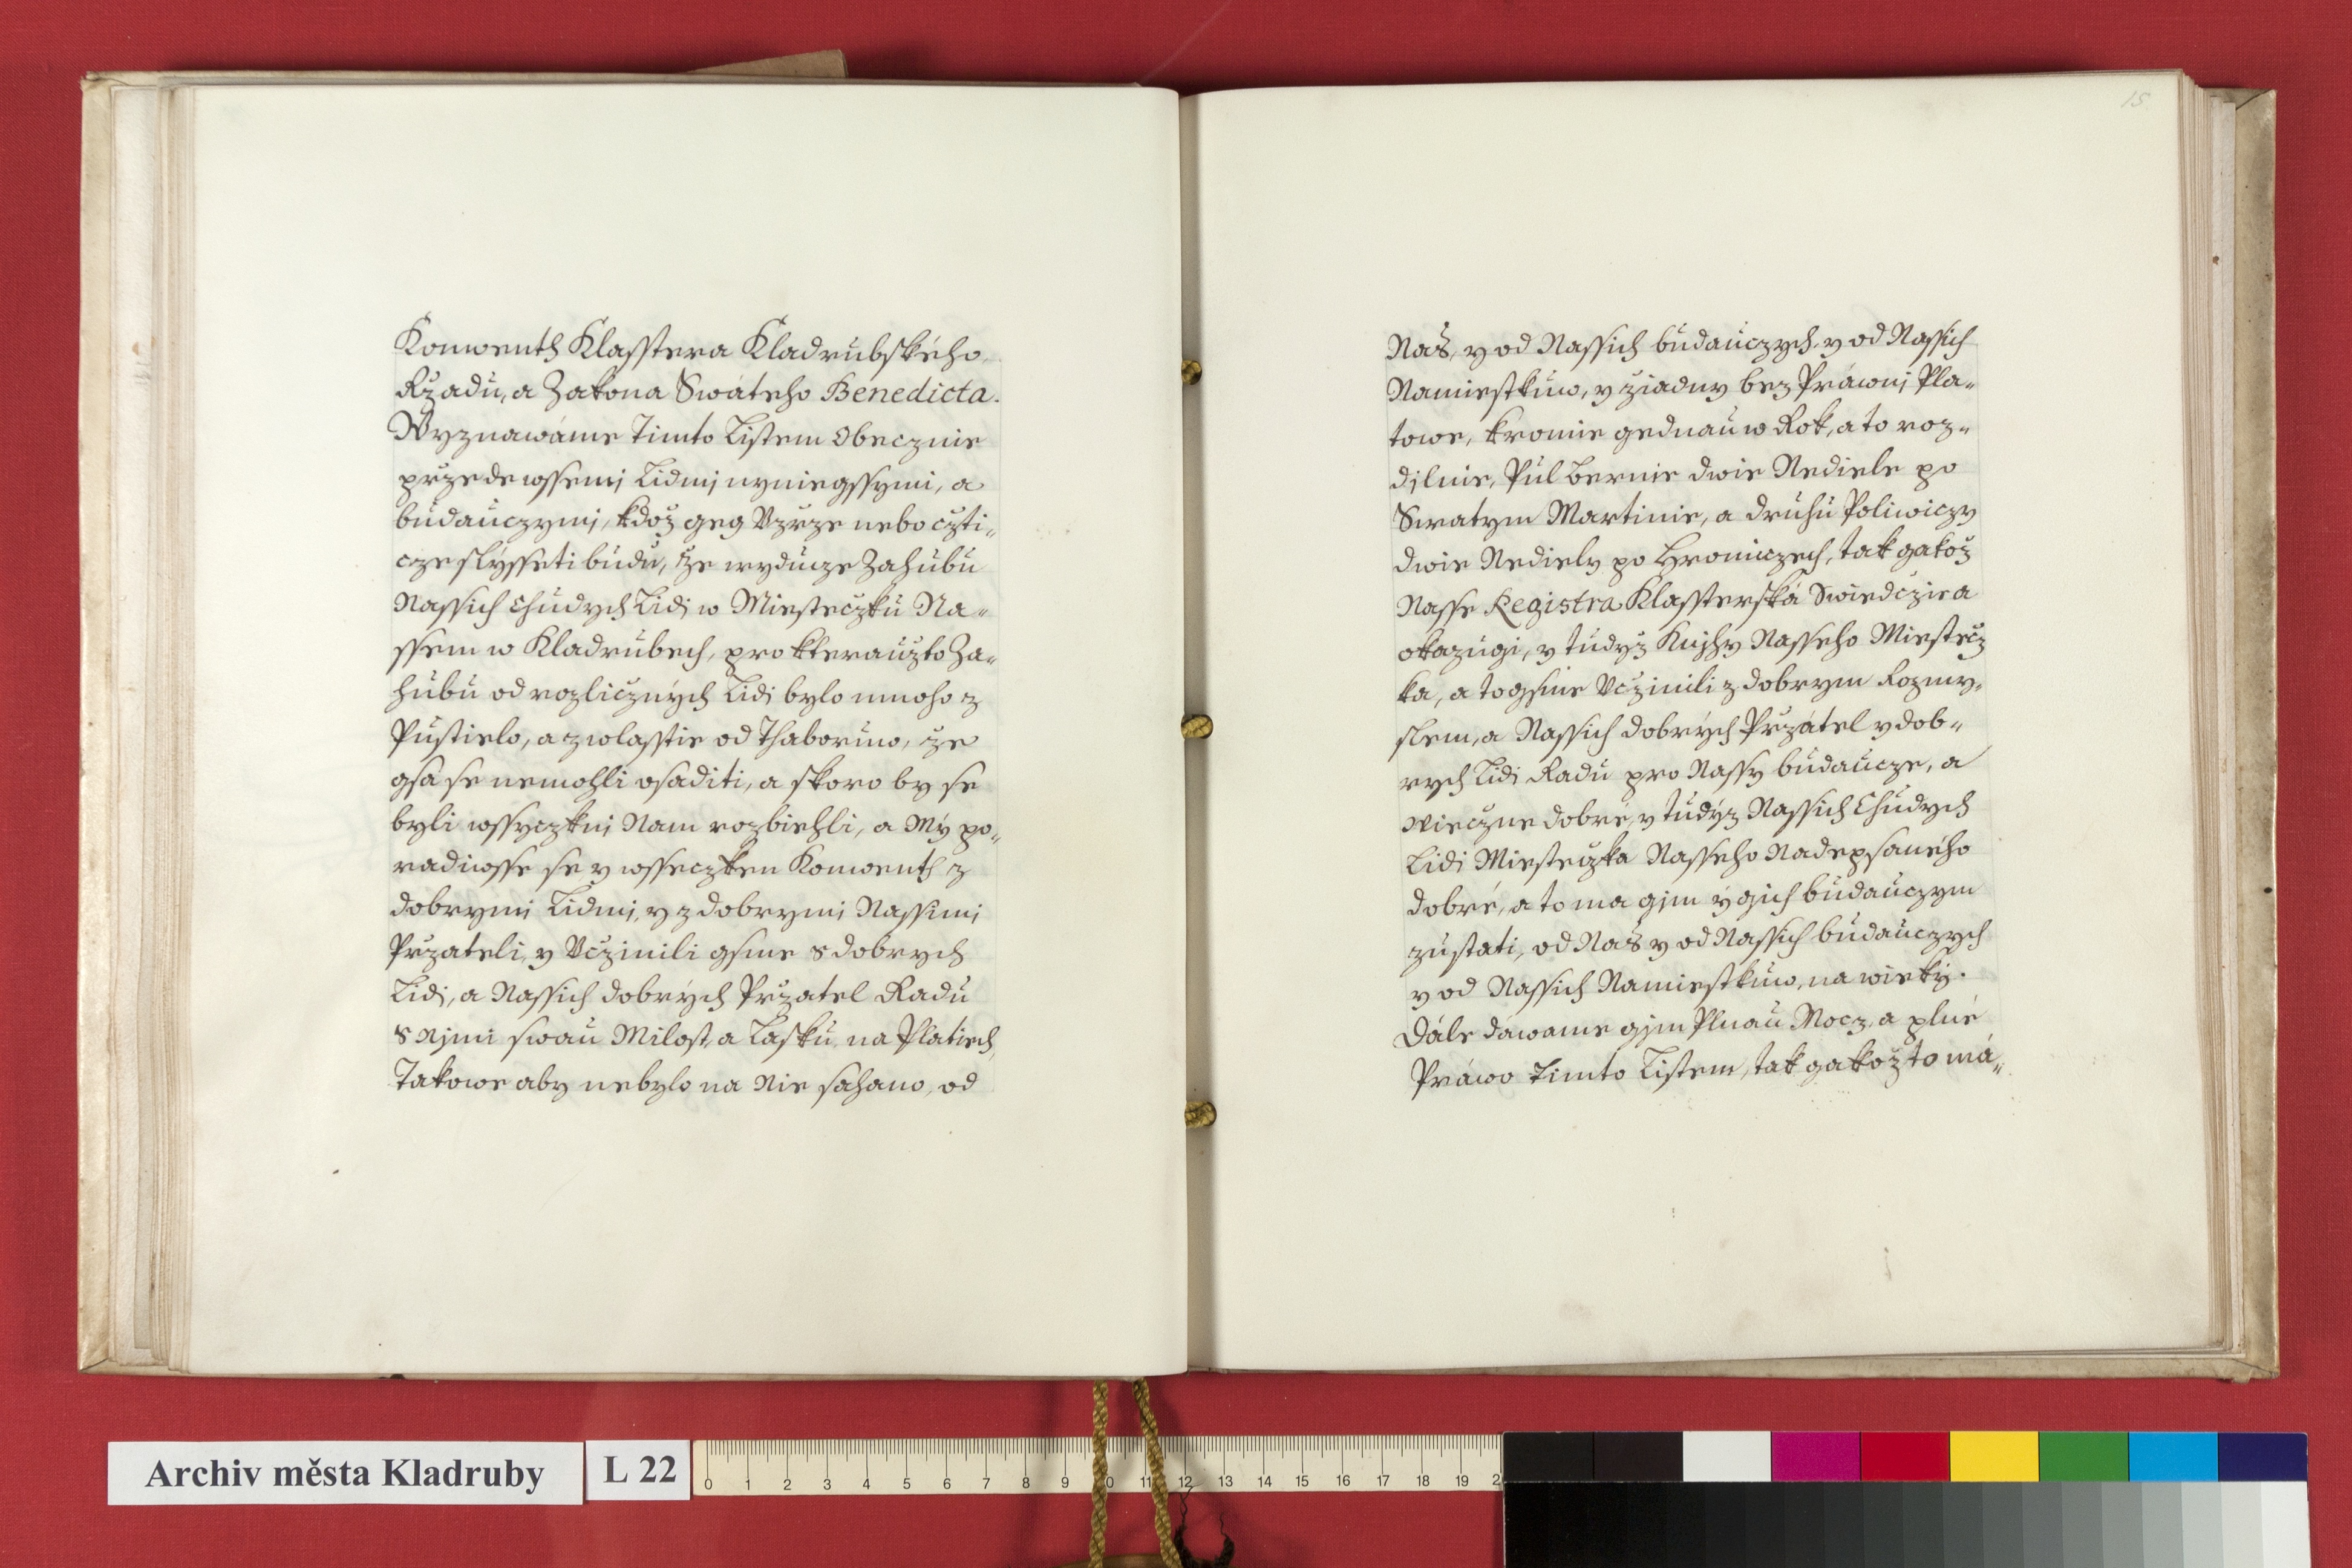 Konwenth Klasstera Kladrubského
Rzadu, a Zakona Swáteho Benedicta.
Wyznawáme Timto Listem Obecznie
przedewssemj Lidmj nyniegssymi, a
budauczymj, kdož geg Vzrze nebo cžti„
cze slýsseti budu, že wyducze Zahubu
Nassich Chudych Lidj w Miesteczku Na„
ssem w Kladrubech, pro kterauzto Za„
hubu od rozlicznych Lidj bylo mnoho z
Pustielo, a zwlasstie od Thaboruw, že
gsa se nemohli osaditi, a skoro by se
byli wssyczknj Nam rozbiehli, a Mý po„
radiwsse se y wsseczken Konwenth z
dobrymi Lidmi, y z dobrymi Nassimi
Przateli, y Vcžinili gsme s dobrych
Lidj, a Nassich dobrých Przatel Radu
s Njmi swau Milost, a Lasku, na Platiech,
Takowe aby nebylo na Nie sahano, od
15
Nás, y od Nassich budauczych, y od Nassich
Namiestkuw, y žiadny bez Práwnj Pla„
towe, kromie gednau w Rok, a to roz„
djlnie, Pul Bernie dwie Nediele po
Swatym Martinie, a druhu Poliwiczy
dwie Nediely po Hromiczech, tak gakož
Nasse Registra Klassterská Swiedczie a
okazugi, y tudyz Knjhy Nasseho Miestecz
ka, a to gsme Vcžinili z dobrym Rozmy„
slem, a Nassich dobrých Przátel y dob„
rych Lidj Radu pro Nassy budaucze, a
Wieczne dobré, y tudýz Nassich Chudych
Lidj Miesteczka Nasseho Nadepsaného
dobré, a to ma gjm ý gich budauczym
zustati, od Nás y od Nassich budauczych
y od Nassich Namiestkuw, na wieky.
Dále dáwame gjm Plnau Mocz, a plné
Práwo Timto Listem, tak gakož to má„
Archiv města Kladruby
L 22
0 1 2 3 4 5 6 7 8 9 10 11 12 13 14 15 16 17 18 19 2